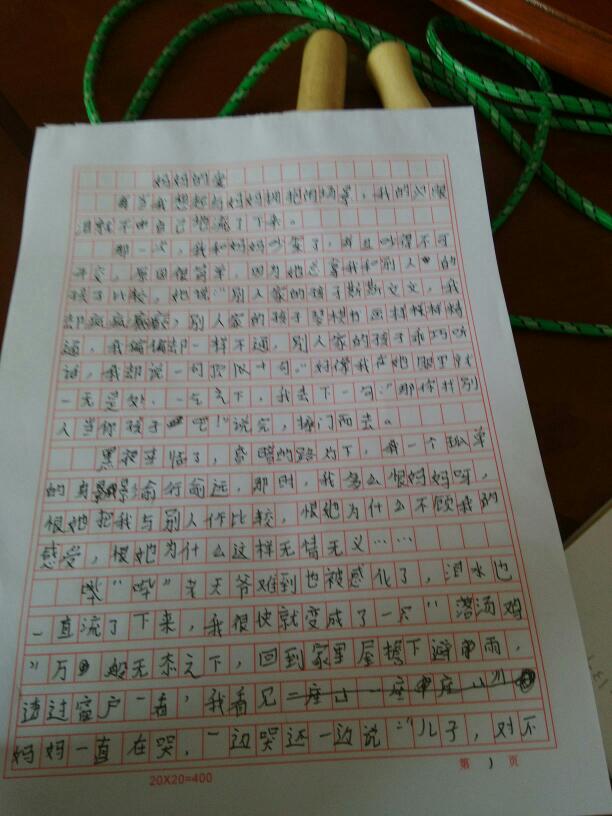 妈妈的爱
每当我想起与妈妈拥抱的场景，我的心里
泪就不由自己地流了下来。
那一次，我和妈妈吵架了，并且吵得不可
开交，原因很简单，因为她总拿我和别人的
孩子比较，她说："别人家的孩子斯斯文文，我
却疯疯癫癫，别人家的孩子琴棋书画样样精
通，我偏偏却一样不通，别人家的孩子乖巧听
话，我却说一句顶十句。"好像我在她眼里就
一无是处，一气之下，我丢下一句："那你找别
人当你孩子吧！"说完，摔门而去。
黑夜来临了，昏暗的路灯下，有一个孤单
的身影渐行渐远，那时，我多么恨妈妈呀，
恨她把我与别人作比较，恨她为什么不顾我的
感受，恨她为什么这样无情无义……
"哗""哗"老天爷难到也被感化了，泪水也
一直流了下来，我很快就变成了一只"落汤鸡
"万般无奈之下，回到家里屋檐下避雨，
透过窗户一看，我看见
妈妈一直在哭，一边哭还一边说："儿子，对不
20X20=400
第 1 页